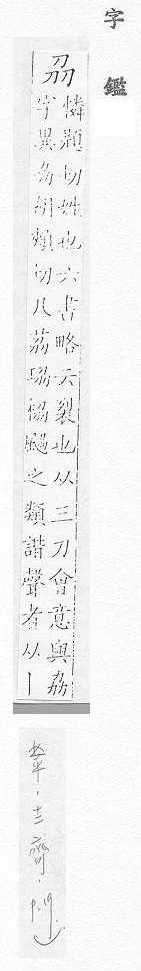 字鑑
刕
憐題切姓也六書略云裂也从三刀會意與劦
字異劦胡頰切凡荔珕協之類諧聲者从丨
平.十二齊.P.19.